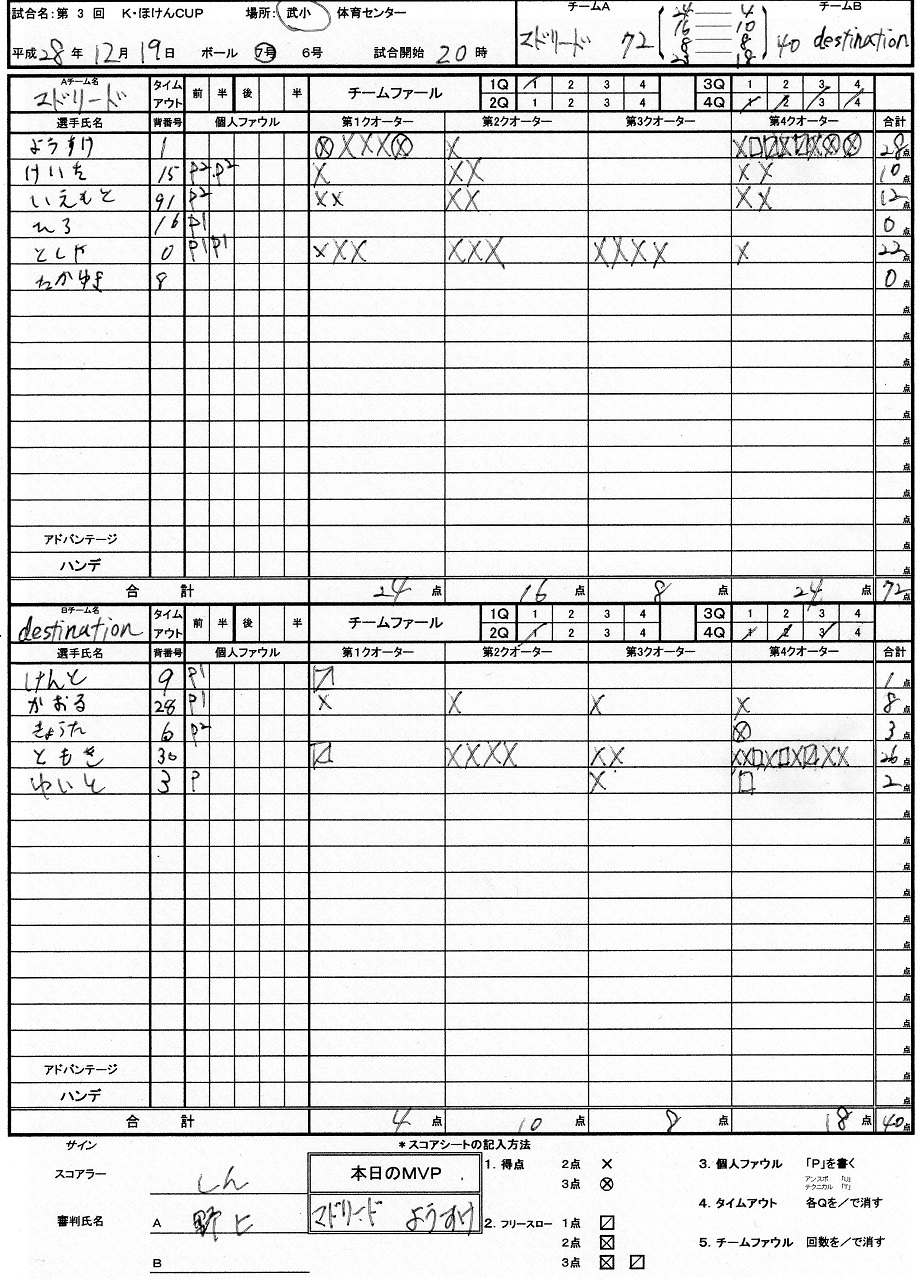 試合名:第 3 回 K・ほけんCUP 場所: 武小 体育センター
平成 28 年 12 月 19 日 ボール 7号 6号 試合開始 20 時
チームA チームB
マドリード 72 40 destination
24 ― 4
16 ― 10
8 ― 8
28 ― 18
Aチーム名 マドリード タイムアウト 前 半 後 半 チームファール 1Q 1 2 3 4 3Q 1 2 3 4
2Q 1 2 3 4 4Q 1 2 3 4
選手氏名 背番号 個人ファウル 第1クオーター 第2クオーター 第3クオーター 第4クオーター 合計
ようすけ 1 28点
けいた 15 P2 P2 10点
いえもと 91 P2 12点
ひろ 16 P1 0点
としや 0 P1 P1 22点
たかゆき 8 0点
アドバンテージ 点
ハンデ 点
合 計 24 点 16 点 8 点 24 点 72点
Bチーム名 destination タイムアウト 前 半 後 半 チームファール 1Q 1 2 3 4 3Q 1 2 3 4
2Q 1 2 3 4 4Q 1 2 3 4
選手氏名 背番号 個人ファウル 第1クオーター 第2クオーター 第3クオーター 第4クオーター 合計
けんと 9 P1 1点
かおる 28 P1 8点
きょうた 6 P2 3点
ともき 30 26点
ゆいと 3 P 2点
アドバンテージ 点
ハンデ 点
合 計 4 点 10 点 8 点 18 点 40点
サイン
スコアラー しん
審判氏名 A 野上
B
本日のMVP
マドリード ようすけ
*スコアシートの記入方法
1. 得点 2点 ×
3点 ⊗
2. フリースロー 1点
2点
3点
3. 個人ファウル 「P」を書く
アンスポ 「U」
テクニカル 「T」
4. タイムアウト 各Qを/で消す
5. チームファウル 回数を/で消す